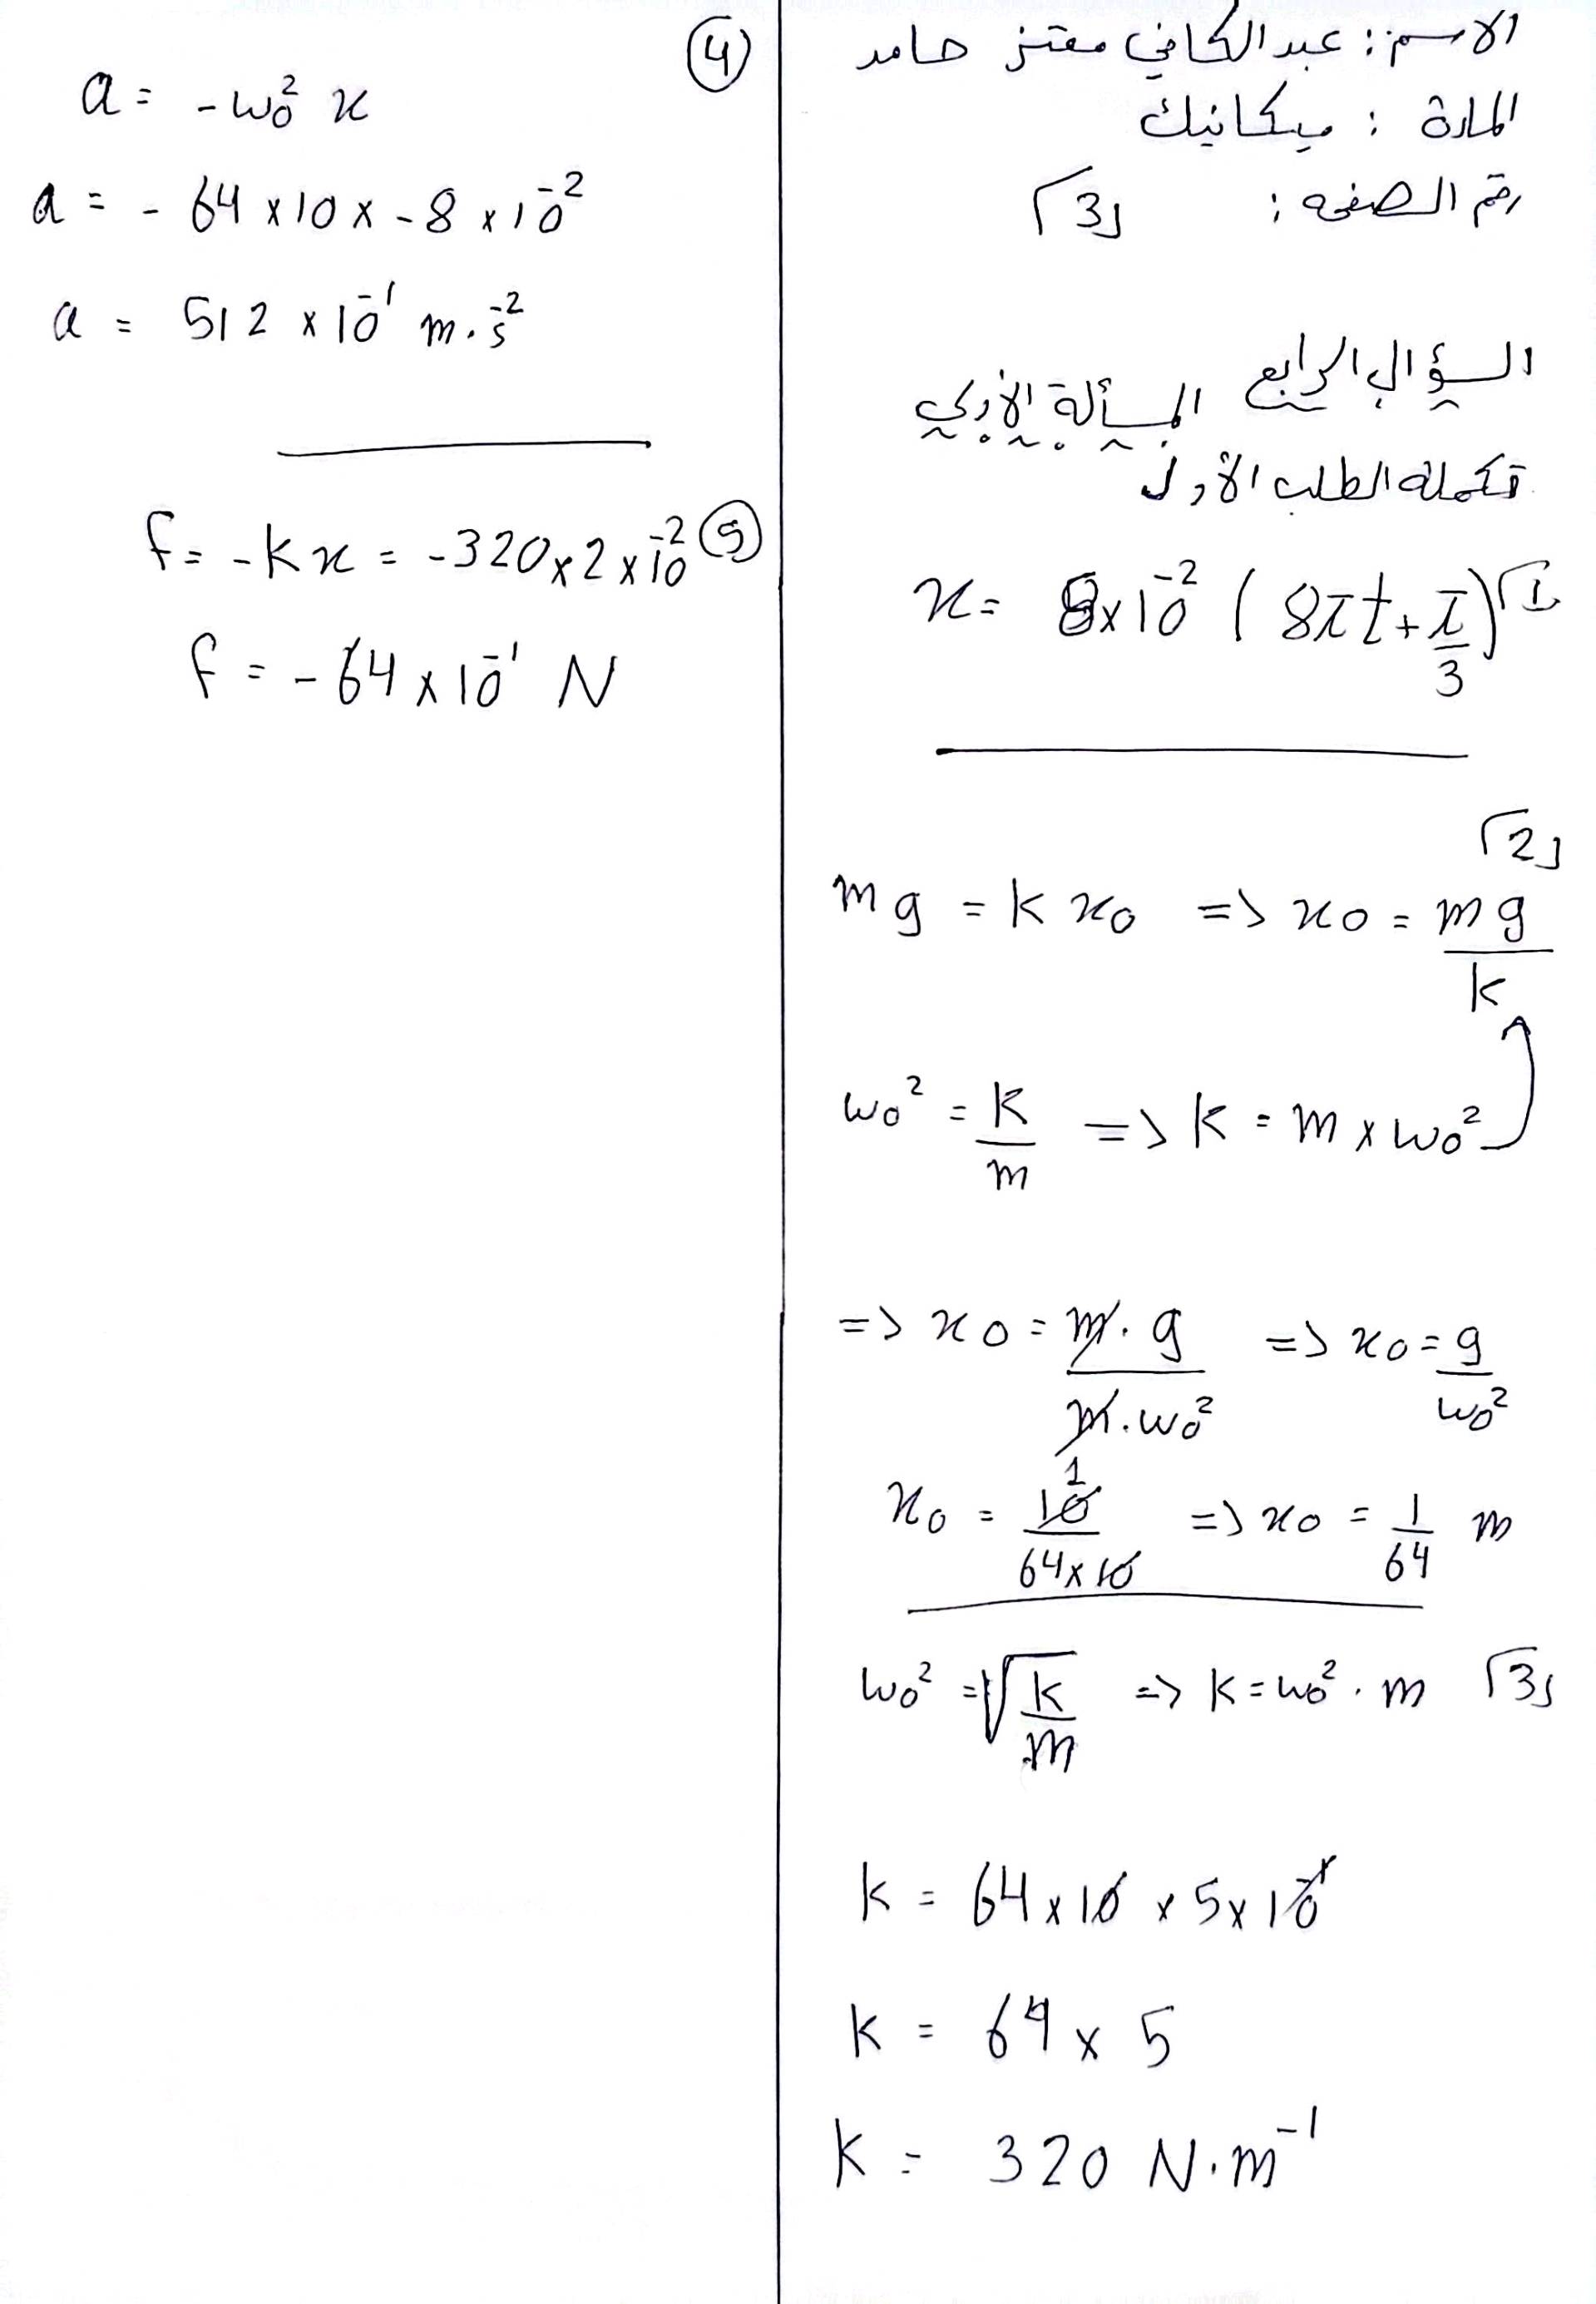 الاسم : عبد الكافي معتز حامد
المادة : ميكانيك
رقم الصفحة : [3]
السؤال الرابع المسألة الأولى
تكملة الطلب الأول
[1] x = 8×10⁻² ( 8πt + π/3 )
[2]
mg = k x₀ => x₀ = mg/k
ω₀² = k/m => k = m × ω₀²
=> x₀ = m.g / m.ω₀² => x₀ = g/ω₀²
x₀ = 10 / 64×10 => x₀ = 1/64 m
[3] ω₀² = √(k/m) => k = ω₀² . m
k = 64×10 × 5×10⁻¹
k = 64 × 5
k = 320 N.m⁻¹
④
a = -ω₀² x
a = - 64 × 10 × -8 × 10⁻²
a = 512 × 10⁻¹ m.s⁻²
⑤ f = -kx = -320×2×10⁻²
f = -64 × 10⁻¹ N